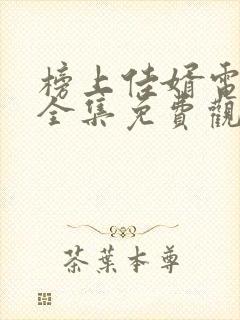 榜上佳婿電
全集免費觀
茶葉本尊